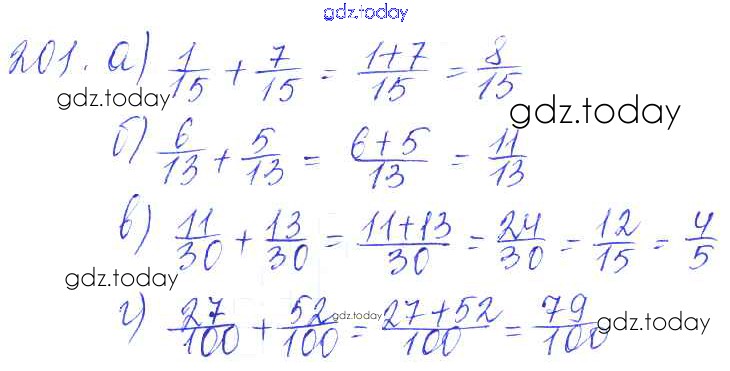 gdz.today
201. а) 1/15 + 7/15 = (1+7)/15 = 8/15
gdz.today gdz.today
б) 6/13 + 5/13 = (6+5)/13 = 11/13
в) 11/30 + 13/30 = (11+13)/30 = 24/30 = 12/15 = 4/5
gdz.today
г) 27/100 + 52/100 = (27+52)/100 = 79/100
gdz.today gdz.today